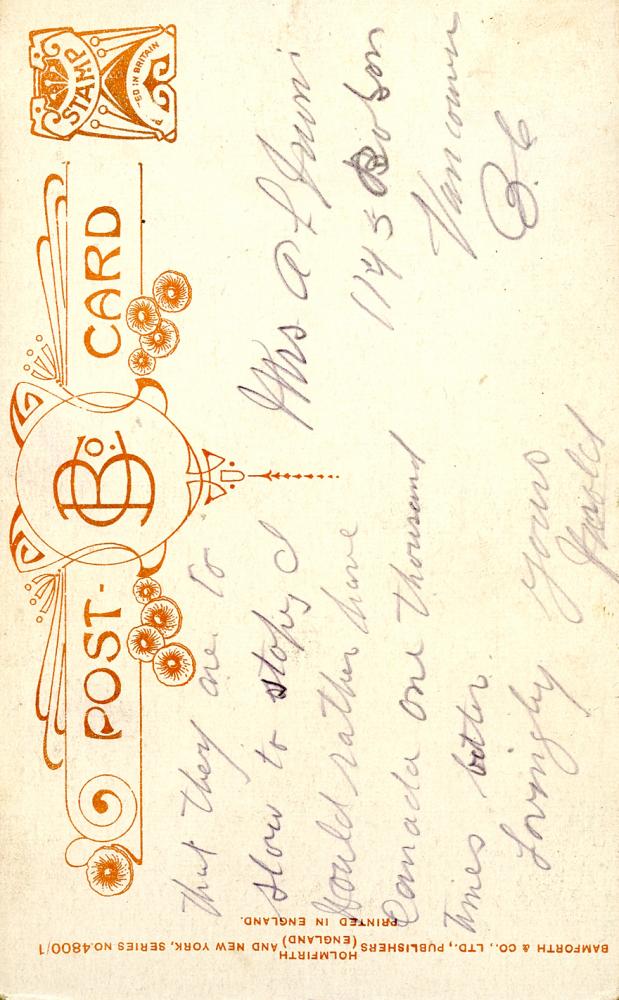 POST-CARD
B Co.
STAMP
P—ED IN BRITAIN
that they are to
slow to stop, I
Would rather have
Canada one thousand
times better.
Lovingly yours
Harold
Mrs A L Irwin
1145 Robson
Vancouver
B.C
BAMFORTH & CO., LTD., PUBLISHERS (HOLMFIRTH (ENGLAND) AND NEW YORK, SERIES NO. 4800/1
PRINTED IN ENGLAND.